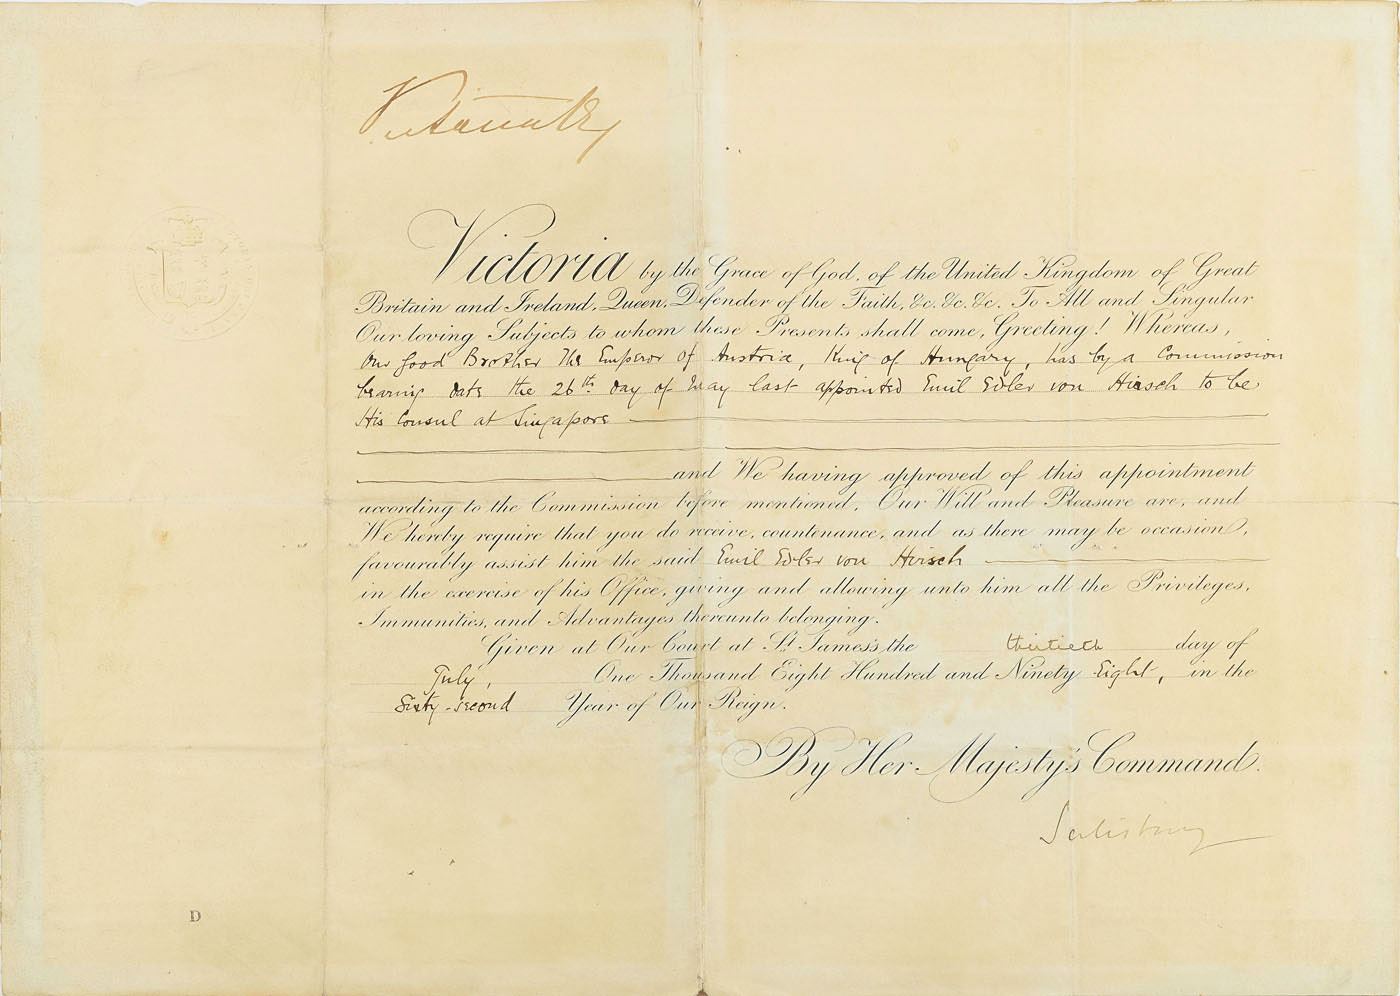 Victoria R I
Victoria by the Grace of God, of the United Kingdom of Great
Britain and Ireland, Queen, Defender of the Faith, &c. &c. &c. To All and Singular
Our loving Subjects to whom these Presents shall come, Greeting! Whereas,
Our Good Brother The Emperor of Austria, King of Hungary, has by a Commission
bearing date the 26th day of May last appointed Emil Edler von Hirsch to be
His Consul at Singapore
and We having approved of this appointment
according to the Commission before mentioned, Our Will and Pleasure are, and
We hereby require that you do receive, countenance, and as there may be occasion,
favourably assist him the said Emil Edler von Hirsch
in the exercise of his Office, giving and allowing unto him all the Privileges,
Immunities, and Advantages thereunto belonging.
Given at Our Court at St. James's, the thirtieth day of
July, One Thousand Eight Hundred and Ninety Eight, in the
Sixty-second Year of Our Reign.
By Her Majesty's Command.
Salisbury
D